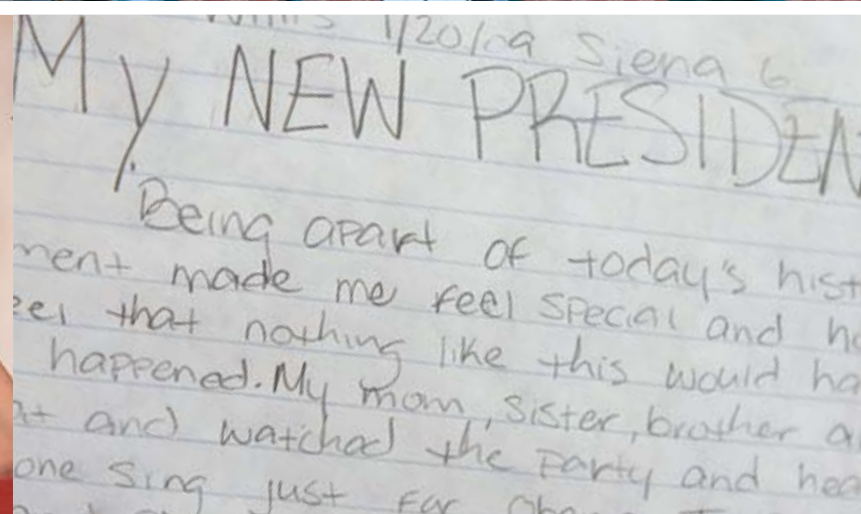 1/20/09 Siena 6
My NEW PRESIDEN
Being apart of today's hist
ment made me feel special and ho
eel that nothing like this would ha
happened. My mom, sister, brother a
at and watched the party and hea
one sing just for